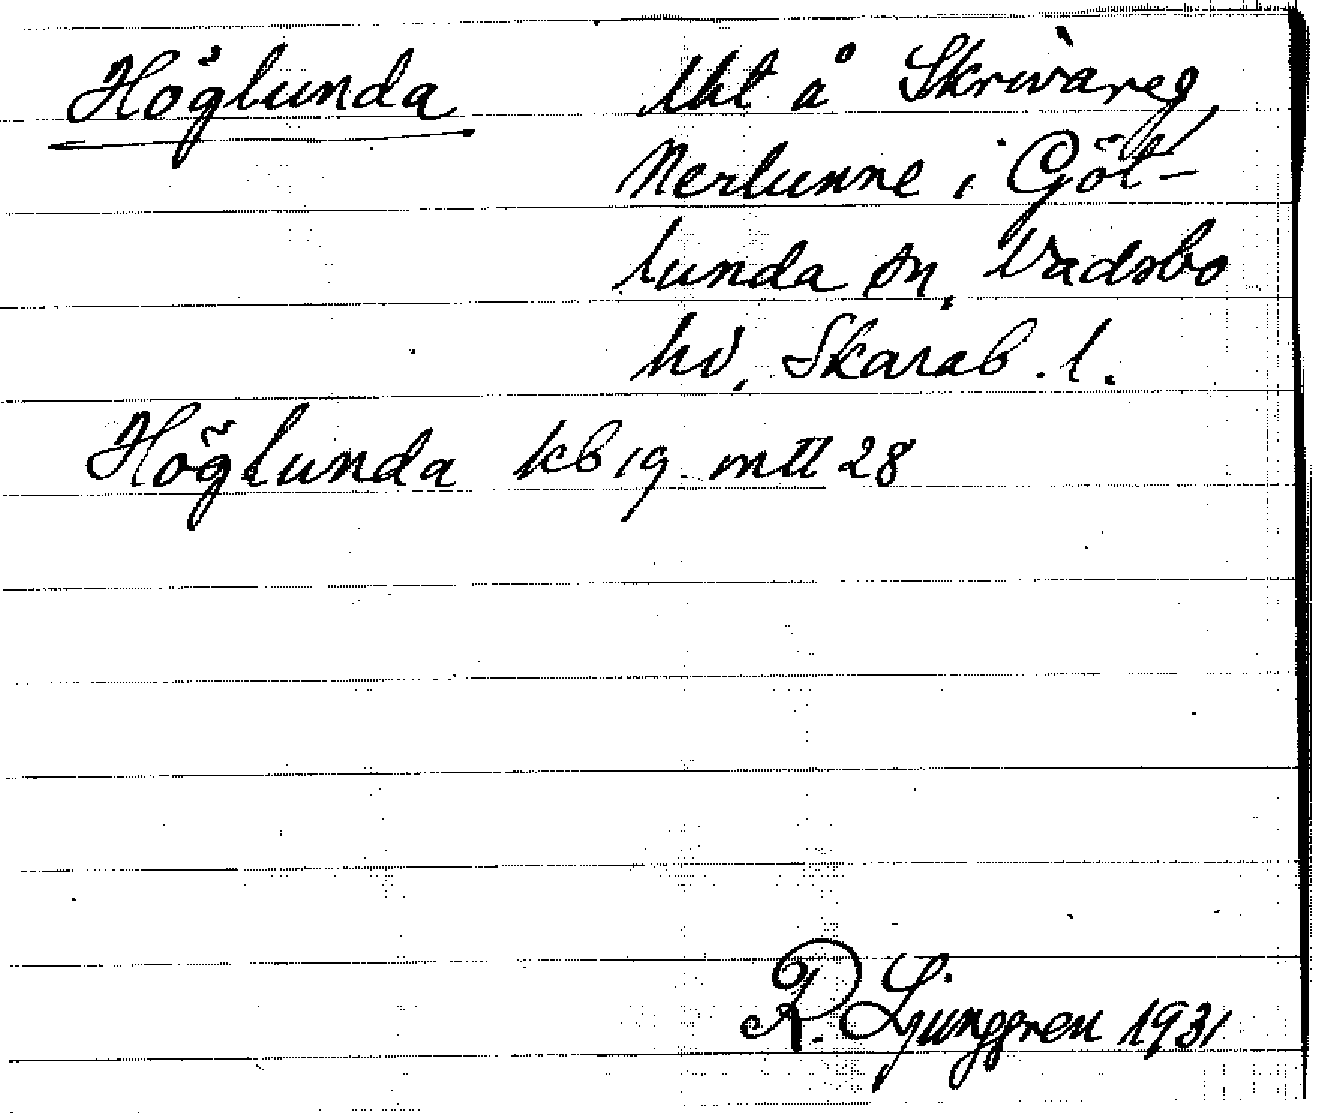 Höglunda lht å Skrivareg,
Nerlunne i Göt-
lunda sn, Vadsbo
hd, Skarab. l.
Höglunda kb 19 mtl 28
R. Ljunggren 1931